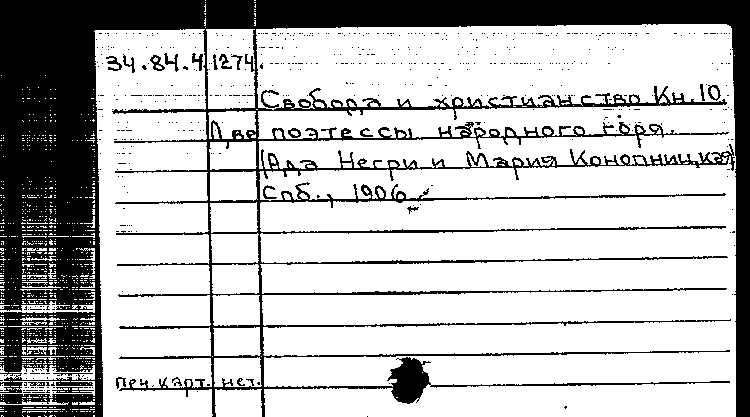 34.84.4.1274.
Свобода и христианство Кн. 10.
Две поэтессы народного горя.
(Ада Негри и Мария Конопницкая)
Спб., 1906
печ. карт. нет.